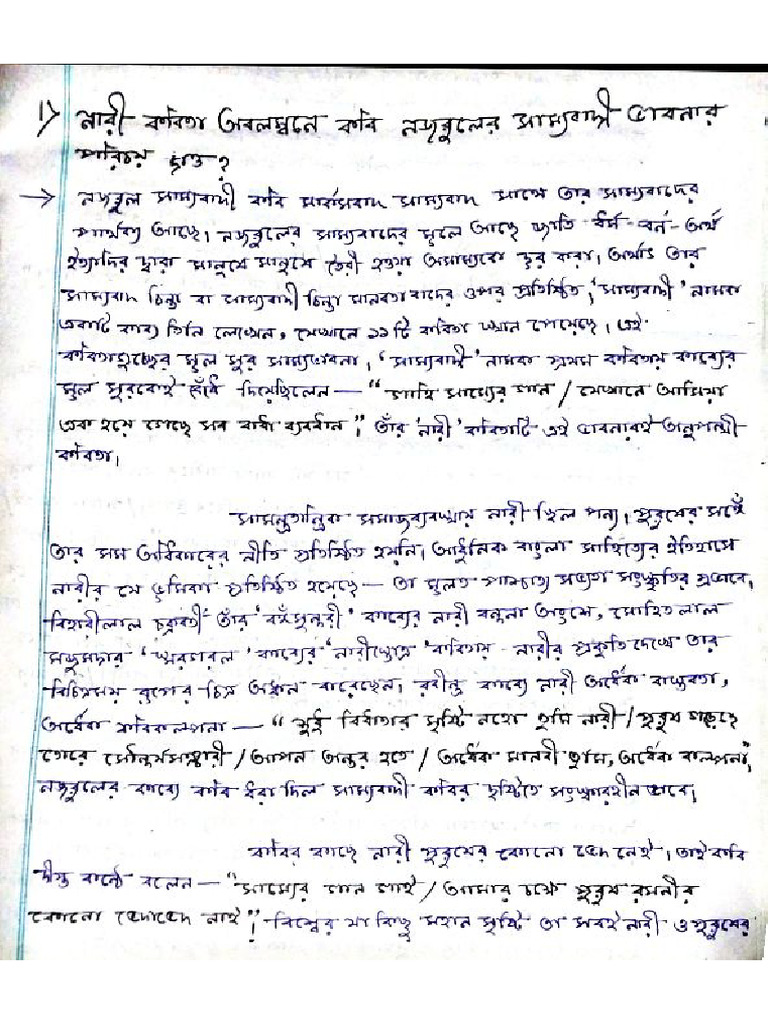 ১> নারী কবিতা অবলম্বনে কবি নজরুলের সাম্যবাদী ভাবনার
পরিচয় দাও?
→ নজরুল সাম্যবাদী কবি মার্কসবাদ সাম্যবাদ সাথে তার সাম্যবাদের
পার্থক্য আছে। নজরুলের সাম্যবাদের মূলে আছে জাতি-ধর্ম-বর্ন-অর্থ
ইত্যাদির দ্বারা মানুষে মানুষে তৈরী হওয়া অসাম্যকে দূর করা। অর্থাৎ তার
সাম্যবাদ চিন্তা বা সাম্যবাদী চিন্তা মানবতাবাদের ওপর প্রতিষ্ঠিত, 'সাম্যবাদী' নামক
একটি কাব্য তিনি লেখেন, যেখানে ১১টি কবিতা স্থান পেয়েছে। এই
কবিতাগুচ্ছের মূল সুর সাম্যভাবনা, 'সাম্যবাদী' নামক প্রথম কবিতায় কাব্যের
মূল সুরকেই বেঁধে দিয়েছিলেন — "গাহি সাম্যের গান / যেখানে আসিয়া
এক হয়ে গেছে সব বাধা ব্যবধান"। তাঁর 'নারী' কবিতাটি এই ভাবনারই অনুপন্থী
কবিতা।
সামন্ততান্ত্রিক সমাজব্যবস্থায় নারী ছিল পন্য। পুরুষের সঙ্গে
তার সম অধিকারের নীতি প্রতিষ্ঠিত হয়নি। আধুনিক বাংলা সাহিত্যের ইতিহাসে
নারীর যে ভূমিকা প্রতিষ্ঠিত হয়েছে — তা মূলত পাশ্চাত্য সভ্যতা সংস্কৃতির প্রভাবে,
বিহারীলাল চক্রবর্তী তাঁর 'বঙ্গসুন্দরী' কাব্যের নারী বন্দনা অংশে, মোহিতলাল
মজুমদার 'স্মরগরল' কাব্যের 'নারীস্তোত্র' কবিতায় নারীর প্রকৃতি দেখে তার
বিচিত্রময় রূপের চিত্র অঙ্কন করেছেন। রবীন্দ্র কাব্যে নারী অর্ধেক বাস্তবতা,
অর্ধেক পরিকল্পনা — "শুধু বিধাতার সৃষ্টি নহো তুমি নারী / পুরুষ গড়েছে
তোরে সৌন্দর্যসঞ্চারী / আপন অন্তর হতে / অর্ধেক মানবী তুমি, অর্ধেক কল্পনা",
নজরুলের কাব্যে কবি ধরা দিল সাম্যবাদী কবির দৃষ্টিতে সংস্কারহীন ভাবে।
কবির কাছে নারী পুরুষের কোনো ভেদ নেই। তাই কবি
দীপ্ত কন্ঠে বলেন — "সাম্যের গান গাই / আমার চক্ষে পুরুষ রমনীর
কোনো ভেদাভেদ নাই"। বিশ্বের যা কিছু মহান সৃষ্টি তা সবই নারী ও পুরুষের